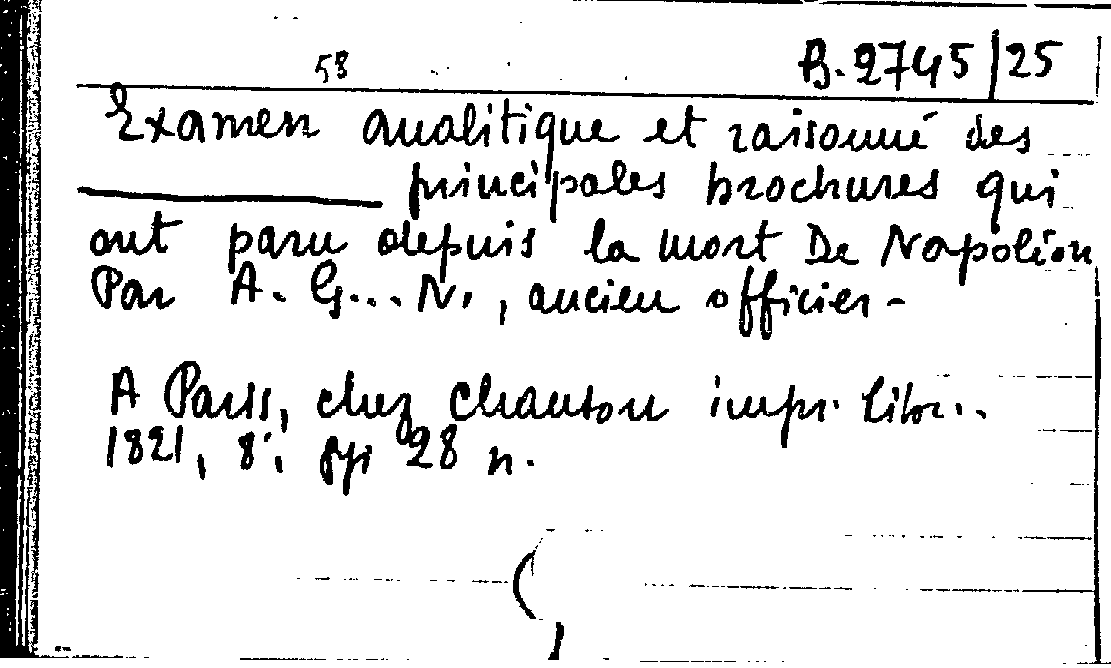 58 B.2745/25
Examen analitique et raisonné des
principales brochures qui
ont paru depuis la mort De Napoléon
Par A. G... N., ancien officier -
A Paris, chez Chanson impr. libr..
1821, 8°, pp 28 n.